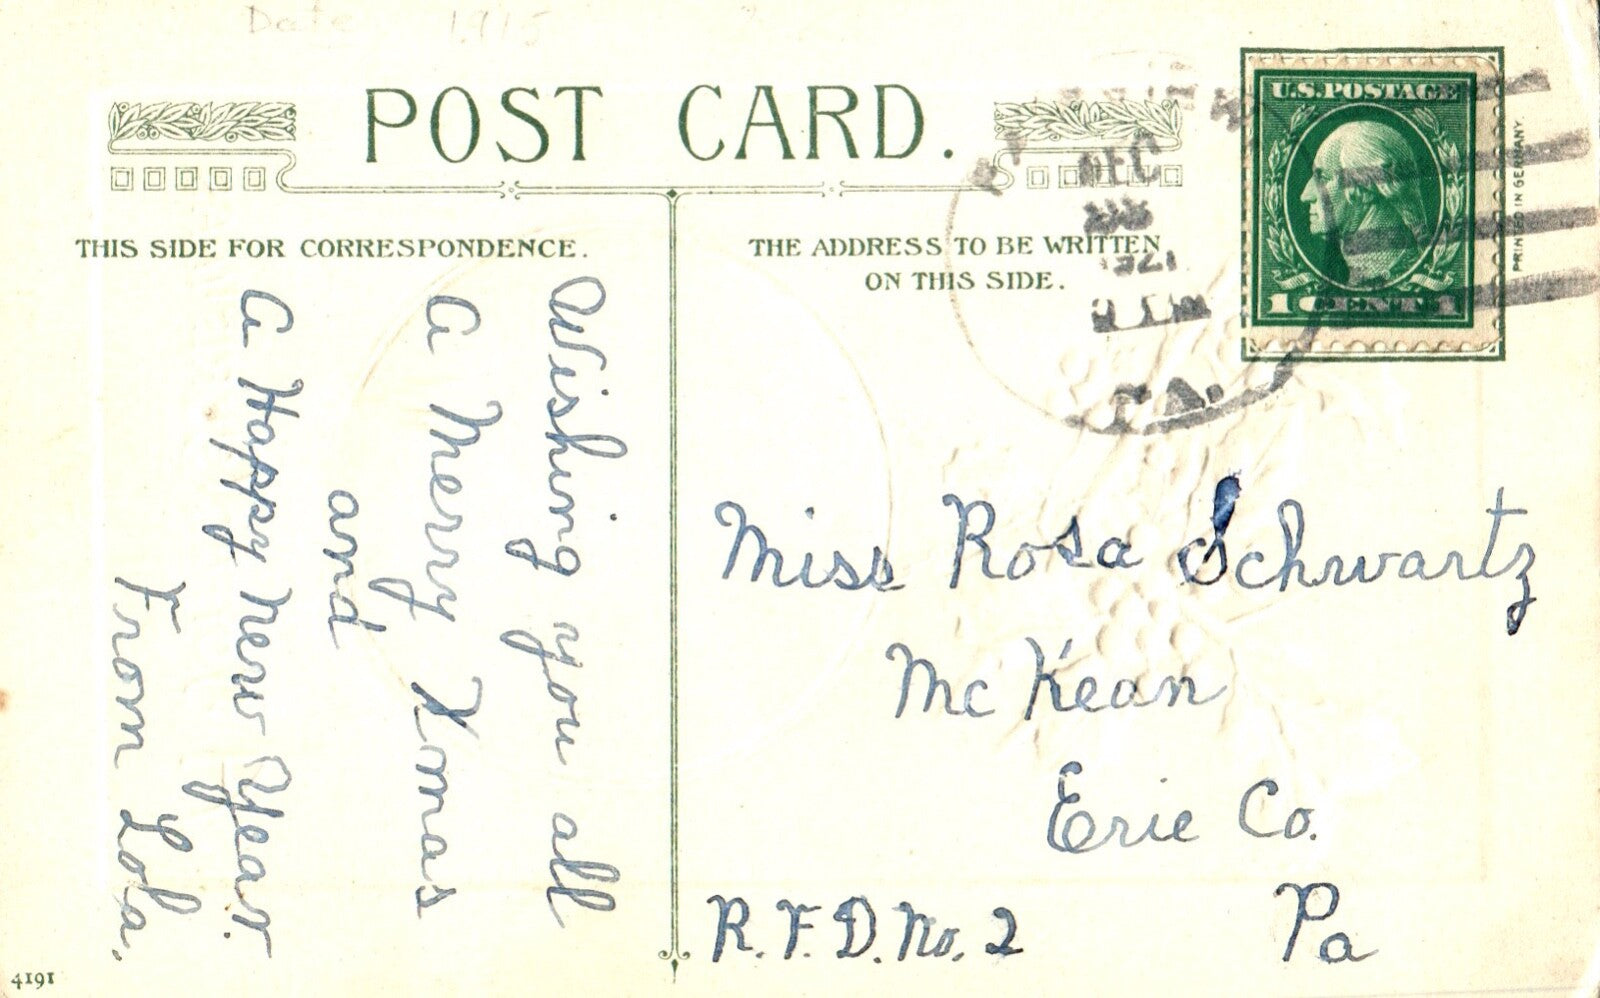 Date 1915
POST CARD.
THIS SIDE FOR CORRESPONDENCE.
THE ADDRESS TO BE WRITTEN
ON THIS SIDE.
U.S. POSTAGE
1 CENT 1
PRINTED IN GERMANY.
DEC
PA.
Wishing you all
A Merry Xmas
and
A Happy New Year.
From Lola.
Miss Rosa Schwartz
Mc Kean
Erie Co.
R.F.D. No. 2 Pa
4191